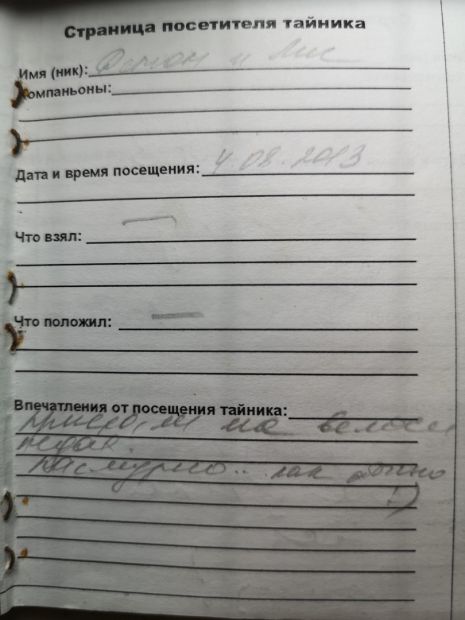 Страница посетителя тайника
Имя (ник): и Лис
Компаньоны:
Дата и время посещения: 4.08.2013
Что взял: —
Что положил: —
Впечатления от посещения тайника:
на велоси
педах.
Пасмурно.. как
:)